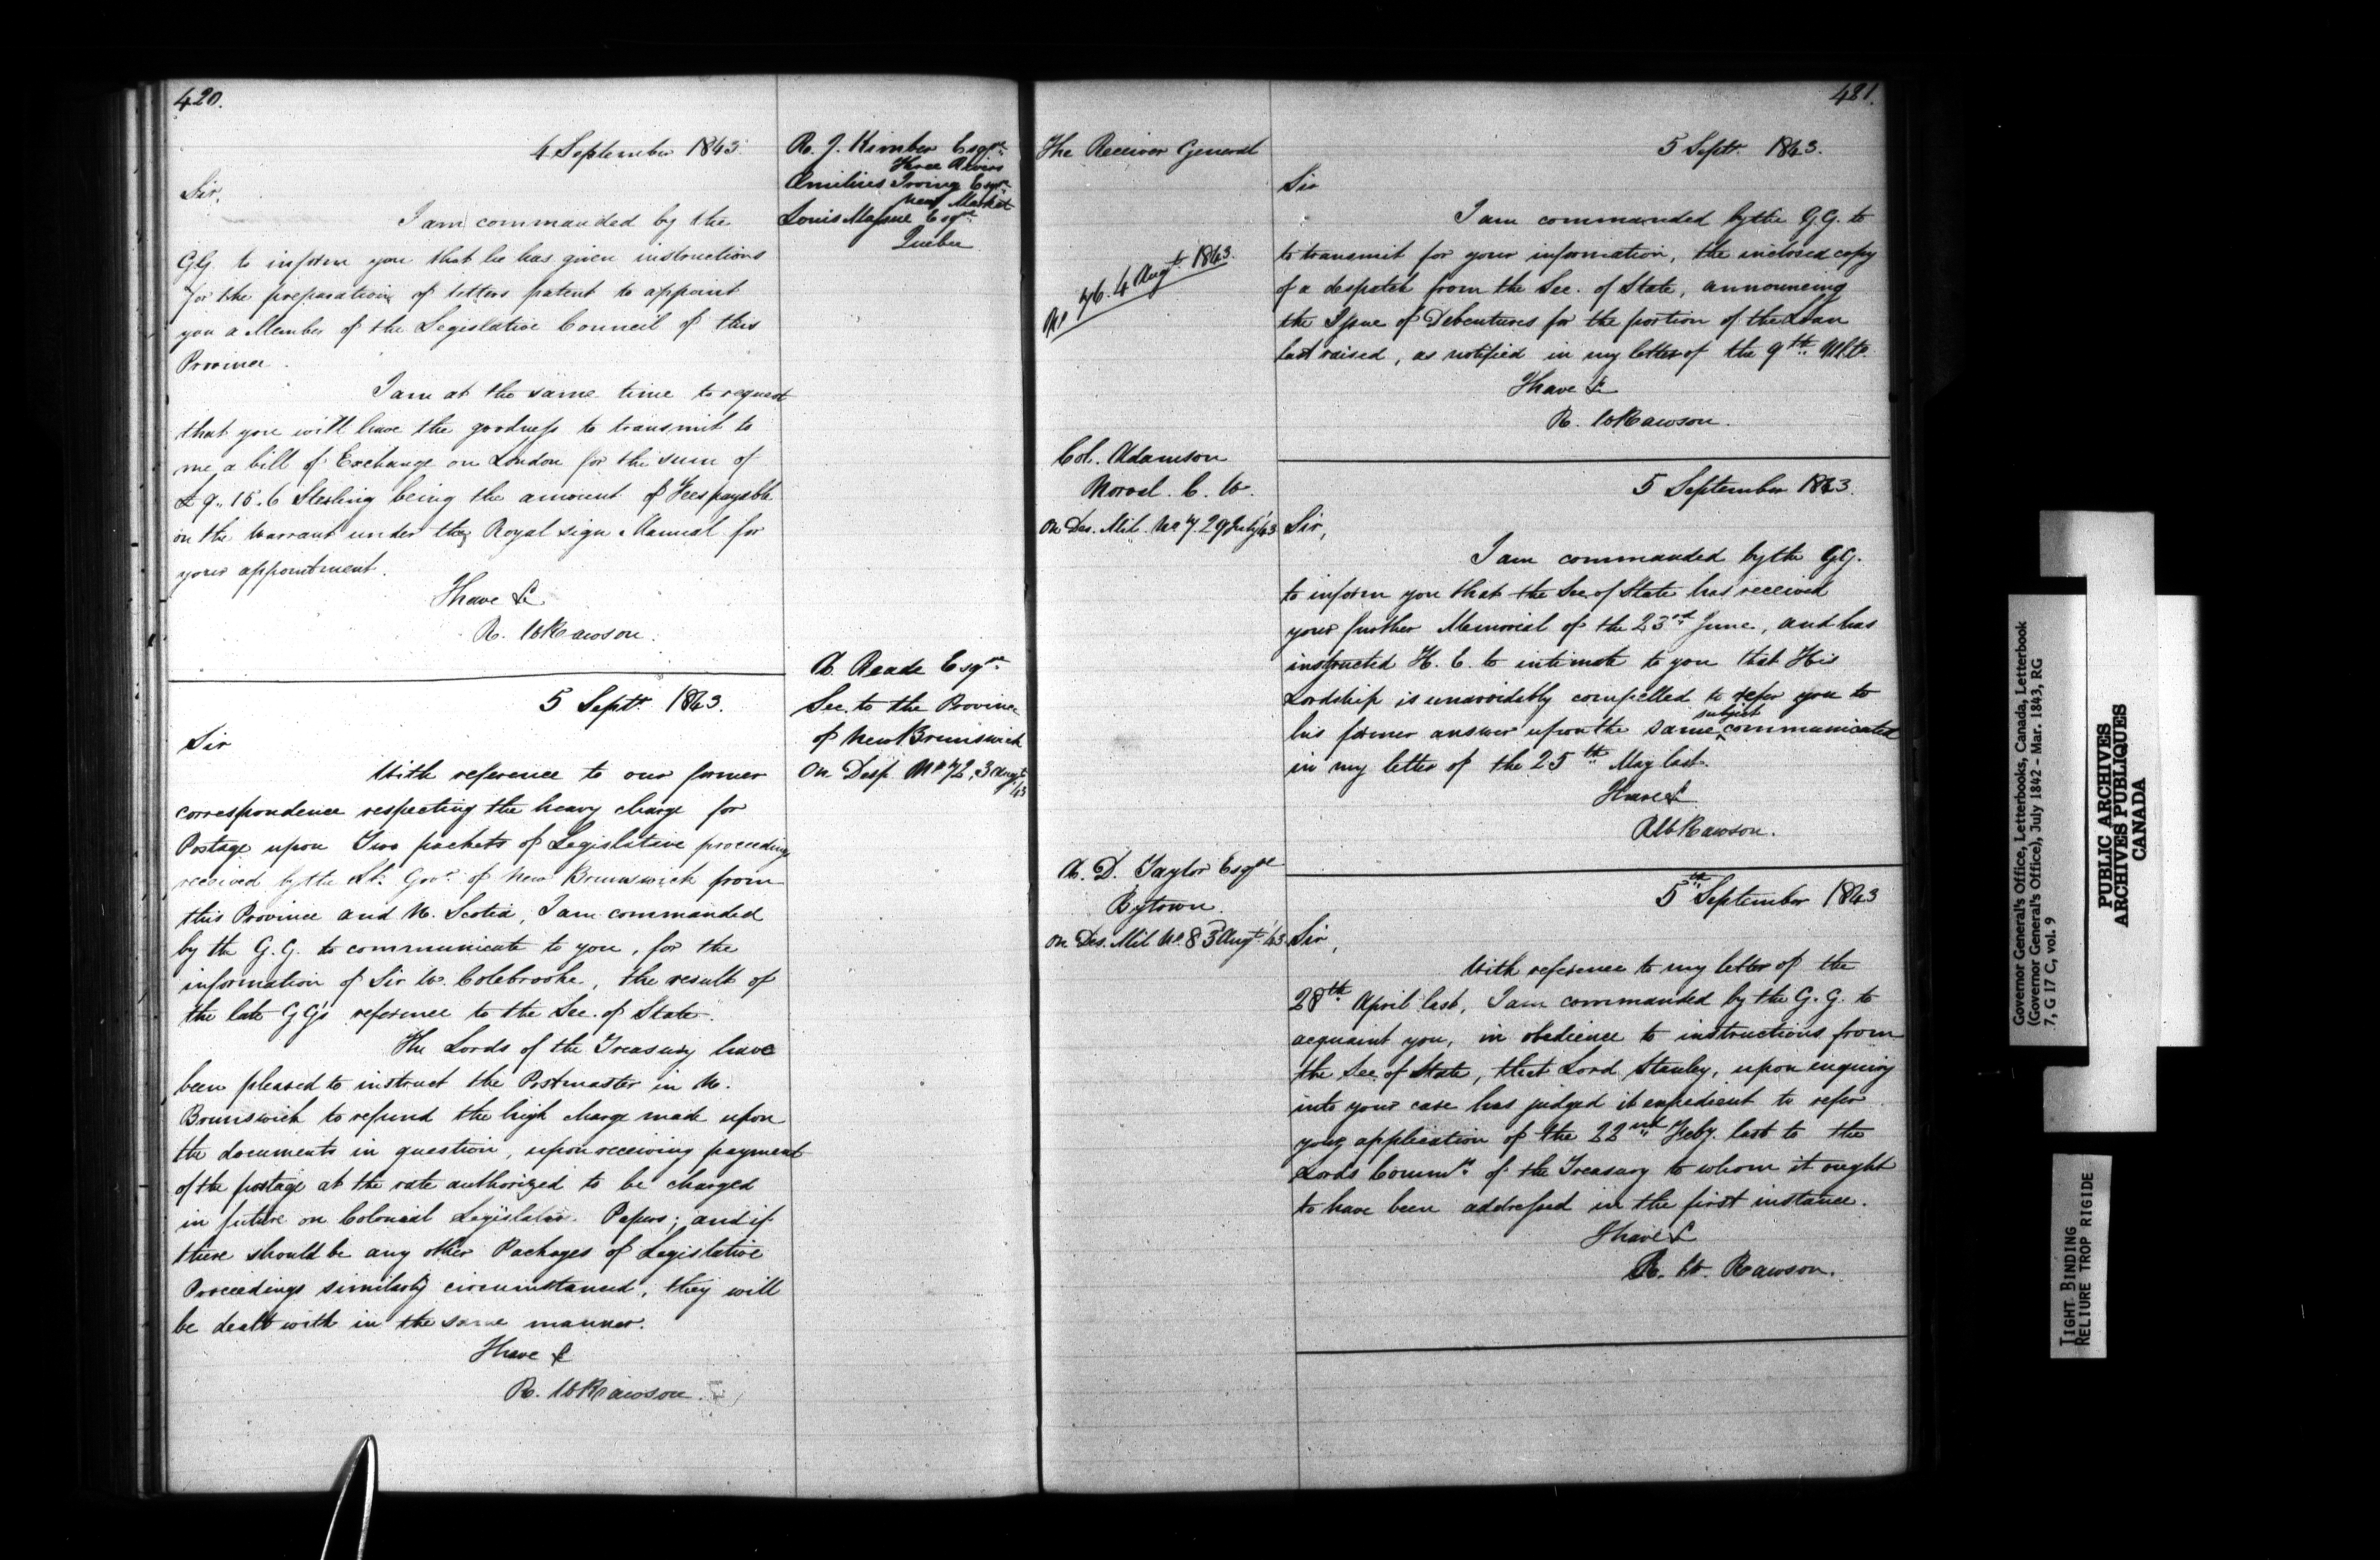 420.
4 September 1843.
R. J. Kimber Esqre
Three Rivers
Æmilius Irving Esqre
New Market
Louis Massue Esqre
Quebec
Sir,
I am commanded by the
GG. to inform you that he has given instructions
for the preparation of letters patent to appoint
you a Member of the Legislative Council of this
Province.
I am at the same time to request
that you will have the goodness to transmit to
me a bill of Exchange on London for the sum of
£9..15.6 Sterling being the amount of Fees payable
on the Warrant under the Royal sign Manual for
your appointment.
I have &c
R. W Rawson.
5 Septr 1843.
A. Reade Esqre
Sec. to the Province
of New Brunswick
On Desp. No 72, 3 Augt
/43
Sir
With reference to our former
correspondence respecting the heavy charge for
Postage upon Two packets of Legislative proceedings
received by the Lt. Govr. of New Brunswick from
this Province and N. Scotia, I am commanded
by the G.G. to communicate to you, for the
information of Sir W. Colebrooke, the result of
the late GG's reference to the Sec. of State.
The Lords of the Treasury have
been pleased to instruct the Postmaster in N.
Brunswick to refund the high charge made upon
the documents in question, upon receiving payment
of the postage at the rate authorized to be charged
in future on Colonial Legislative Papers; and if
there should be any other Packages of Legislative
Proceedings similarly circumstanced, they will
be dealt with in the same manner.
I have &c
R. W Rawson.
421.
The Receiver General
5 Septr. 1843.
No 76. 4 Augt. 1843.
Sir
I am commanded by the G.G. to
to transmit for your information, the inclosed copy
of a despatch from the Sec. of State, announcing
the Issue of Debentures for the portion of the Loan
last raised, as notified in my letter of the 9th Ulto.
I have &c
R. W Rawson.
Col. Adamson
Norval. C. W.
on Des. Mil. No 7. 29 July/43
5 September 1843.
Sir,
I am commanded by the GG.
to inform you that the Sec. of State has received
your further Memorial of the 23rd June, and has
instructed H. E. to intimate to you that His
Lordship is unavoidably compelled to refer you to
his former answer upon the same ^subject communicated
in my letter of the 25th May last.
I have &c
R W Rawson.
A. D. Taylor Esqre
Bytown.
on Des. Mil No. 8 3 Augt /43
5th September 1843
Sir,
With reference to my letter of the
28th April last, I am commanded by the G. G. to
acquaint you, in obedience to instructions from
the Sec. of State, that Lord Stanley, upon enquiry
into your case has judged it expedient to refer
your application of the 22nd Feby. last to the
Lords Commrs. of the Treasury to whom it ought
to have been addressed in the first instance.
I have &c
R. W. Rawson.
Governor General's Office, Letterbooks, Canada, Letterbook
(Governor General's Office), July 1842 - Mar. 1843, RG
7, G 17 C, vol. 9
PUBLIC ARCHIVES
ARCHIVES PUBLIQUES
CANADA
TIGHT BINDING
RELIURE TROP RIGIDE